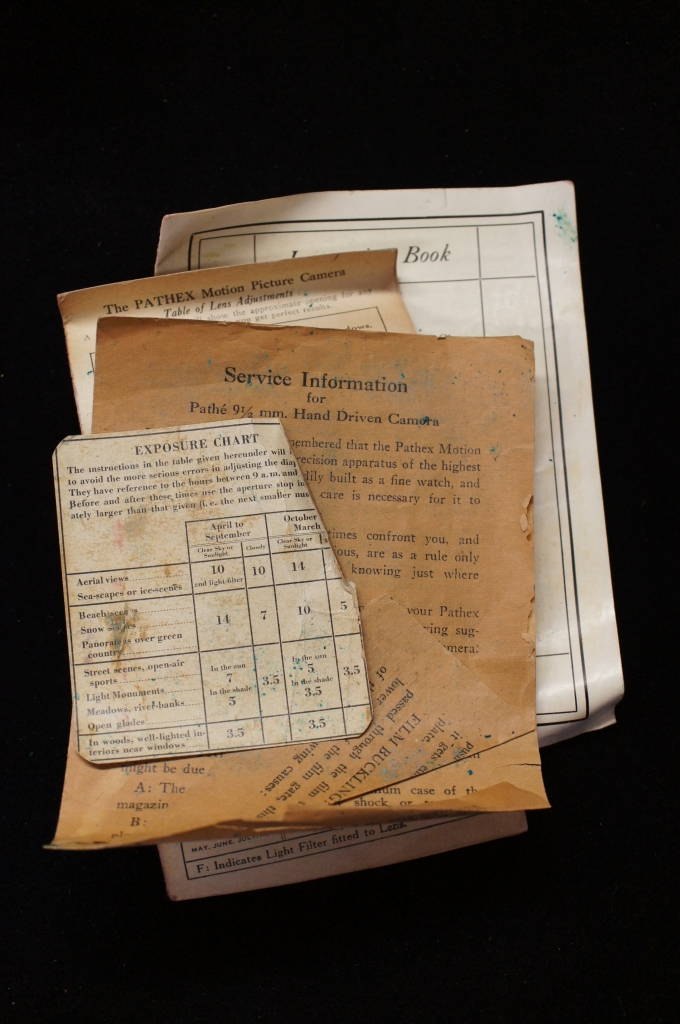 Book
The PATHEX Motion Picture Camera
Table of Lens Adjustments
show the approximate opening for any
get perfect results.
Service Information
for
Pathé 9½ mm. Hand Driven Camera
membered that the Pathex Motion
recision apparatus of the highest
dily built as a fine watch, and
care is necessary for it to
times confront you, and
ous, are as rule only
knowing just where
your Pathex
ring sug-
amera:
EXPOSURE CHART
The instructions in the table given hereunder will
to avoid the more serious errors in adjusting the dia
They have reference to the hours between 9 a.m. and
Before and after these times use the aperture stop
ately larger than that given (i.e. the next smaller nu
April to September
October March
Clear Sky or Sunlight
Cloudy
Clear Sky or Sunlight
Aerial views
Sea-scapes or ice-scenes
10 and light-filter
10
14
Beach scenes
Snow
Panoramas over green country
14
7
10
5
Street scenes, open-air sports
Light Monuments
Meadows, river-banks
Open glades
In the sun
7
In the shade
5
3.5
In the sun
5
In the shade
3.5
3.5
In woods, well-lighted interiors near windows
3.5
3.5
might be due
A: The
magazin
B:
FILM BUCKLING
passed through the film
the film gate, this
wing causes:
lower
plate
it gets
push
mum case of th
shock or
MAY, JUNE, JULY
F: Indicates Light Filter fitted to Lens